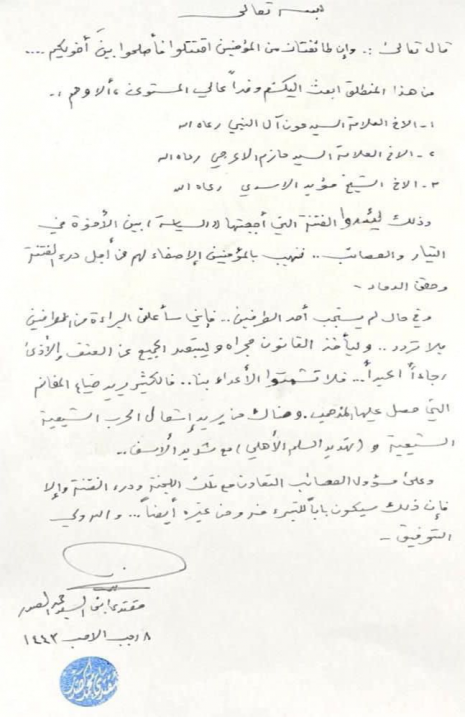 بسمه تعالى
قال تعالى :. وإن طائفتان من المؤمنين اقتتلوا فأصلحوا بين أخويكم ....
من هذا المنطلق ابعث اليكم وفداً عالي المستوى ، ألا وهم :.
١- الاخ العلامة السيد عون آل النبي رعاه الله
٢- الاخ العلامة السيد حازم الاعرجي رعاه الله
٣- الاخ الشيخ مؤيد الاسدي رعاه الله
وذلك ليُئِدوا الفتنة التي أججتها ((السياسة)) بين الأخوة في
التيار والعصائب .. فنهيب بالمؤمنين الإصغاء لهم من أجل درء الفتنة
وحقن الدماء ـ
وفي حال لم يستجب أحد الطرفين .. فإني سأعلن البراءة من الطرفين
بلا تردد .. وليأخذ القانون مجراه وليبتعد الجميع عن العنف والأذى
رجاءاً أكيداً ... فلا تشمتوا الأعداء بنا .. فالكثير يريد ضياع المغانم
التي حصل عليها المذهب . وهناك من يريد إشعال الحرب الشيعية
الشيعية و (تهديد السلم الأهلي) مع شديد الأسف ..
وعلى مسؤول العصائب التعاون مع تلك اللجنة ودرء الفتنة وإلا
فإن ذلك سيكون باباً للتبرء منه ومن غيره أيضاً ... والله ولي
التوفيق ـ
مقتدى ابن السيد محمد الصدر
٨ رجب الاصب ١٤٤٣